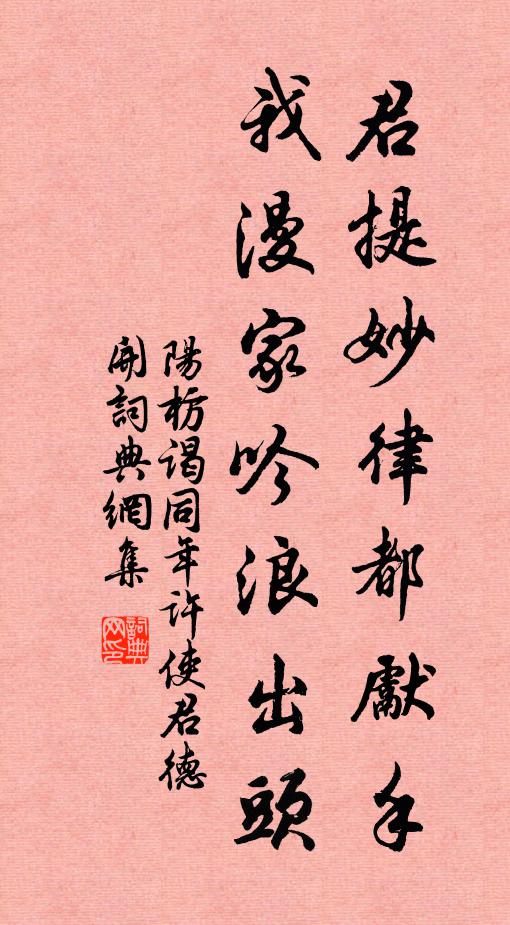 君提妙律都獻手
我漫家吟浪出頭
陽枋謁同年許使君德
開詞典網集
詞典網印